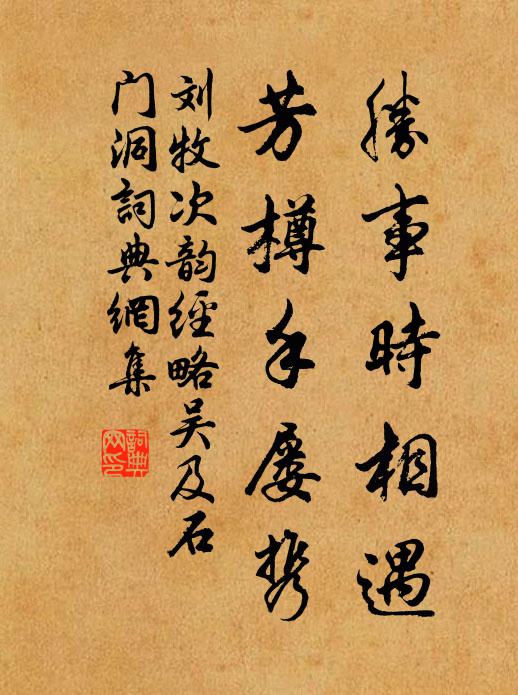 勝事時相遇
芳樽手屡携
刘牧次韵經略吴及石
门洞詞典網集
詞典網印